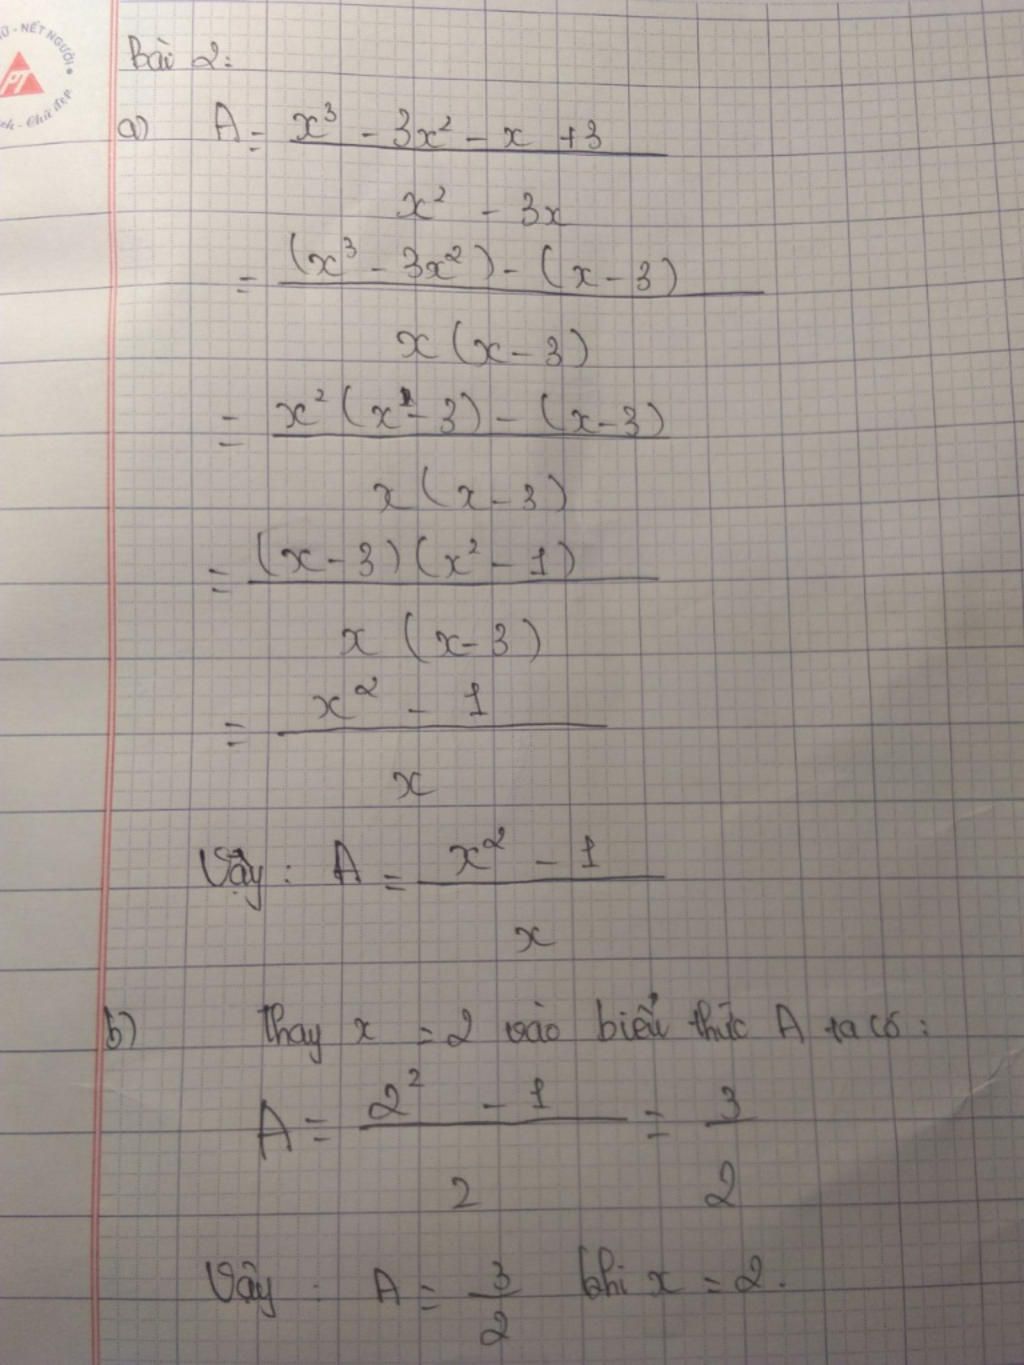 Ữ - NẾT NGƯỜI
PT
ch - Chữ đẹp
Bài 2:
a) A = x³ - 3x² - x + 3
x² - 3x
= (x³ - 3x²) - (x - 3)
x (x - 3)
= x² (x - 3) - (x - 3)
x (x - 3)
= (x - 3) (x² - 1)
x (x - 3)
= x² - 1
x
Vậy : A = x² - 1
x
b) thay x = 2 vào biểu thức A ta có :
A = 2² - 1 = 3
2 2
Vậy : A = 3 khi x = 2.
2